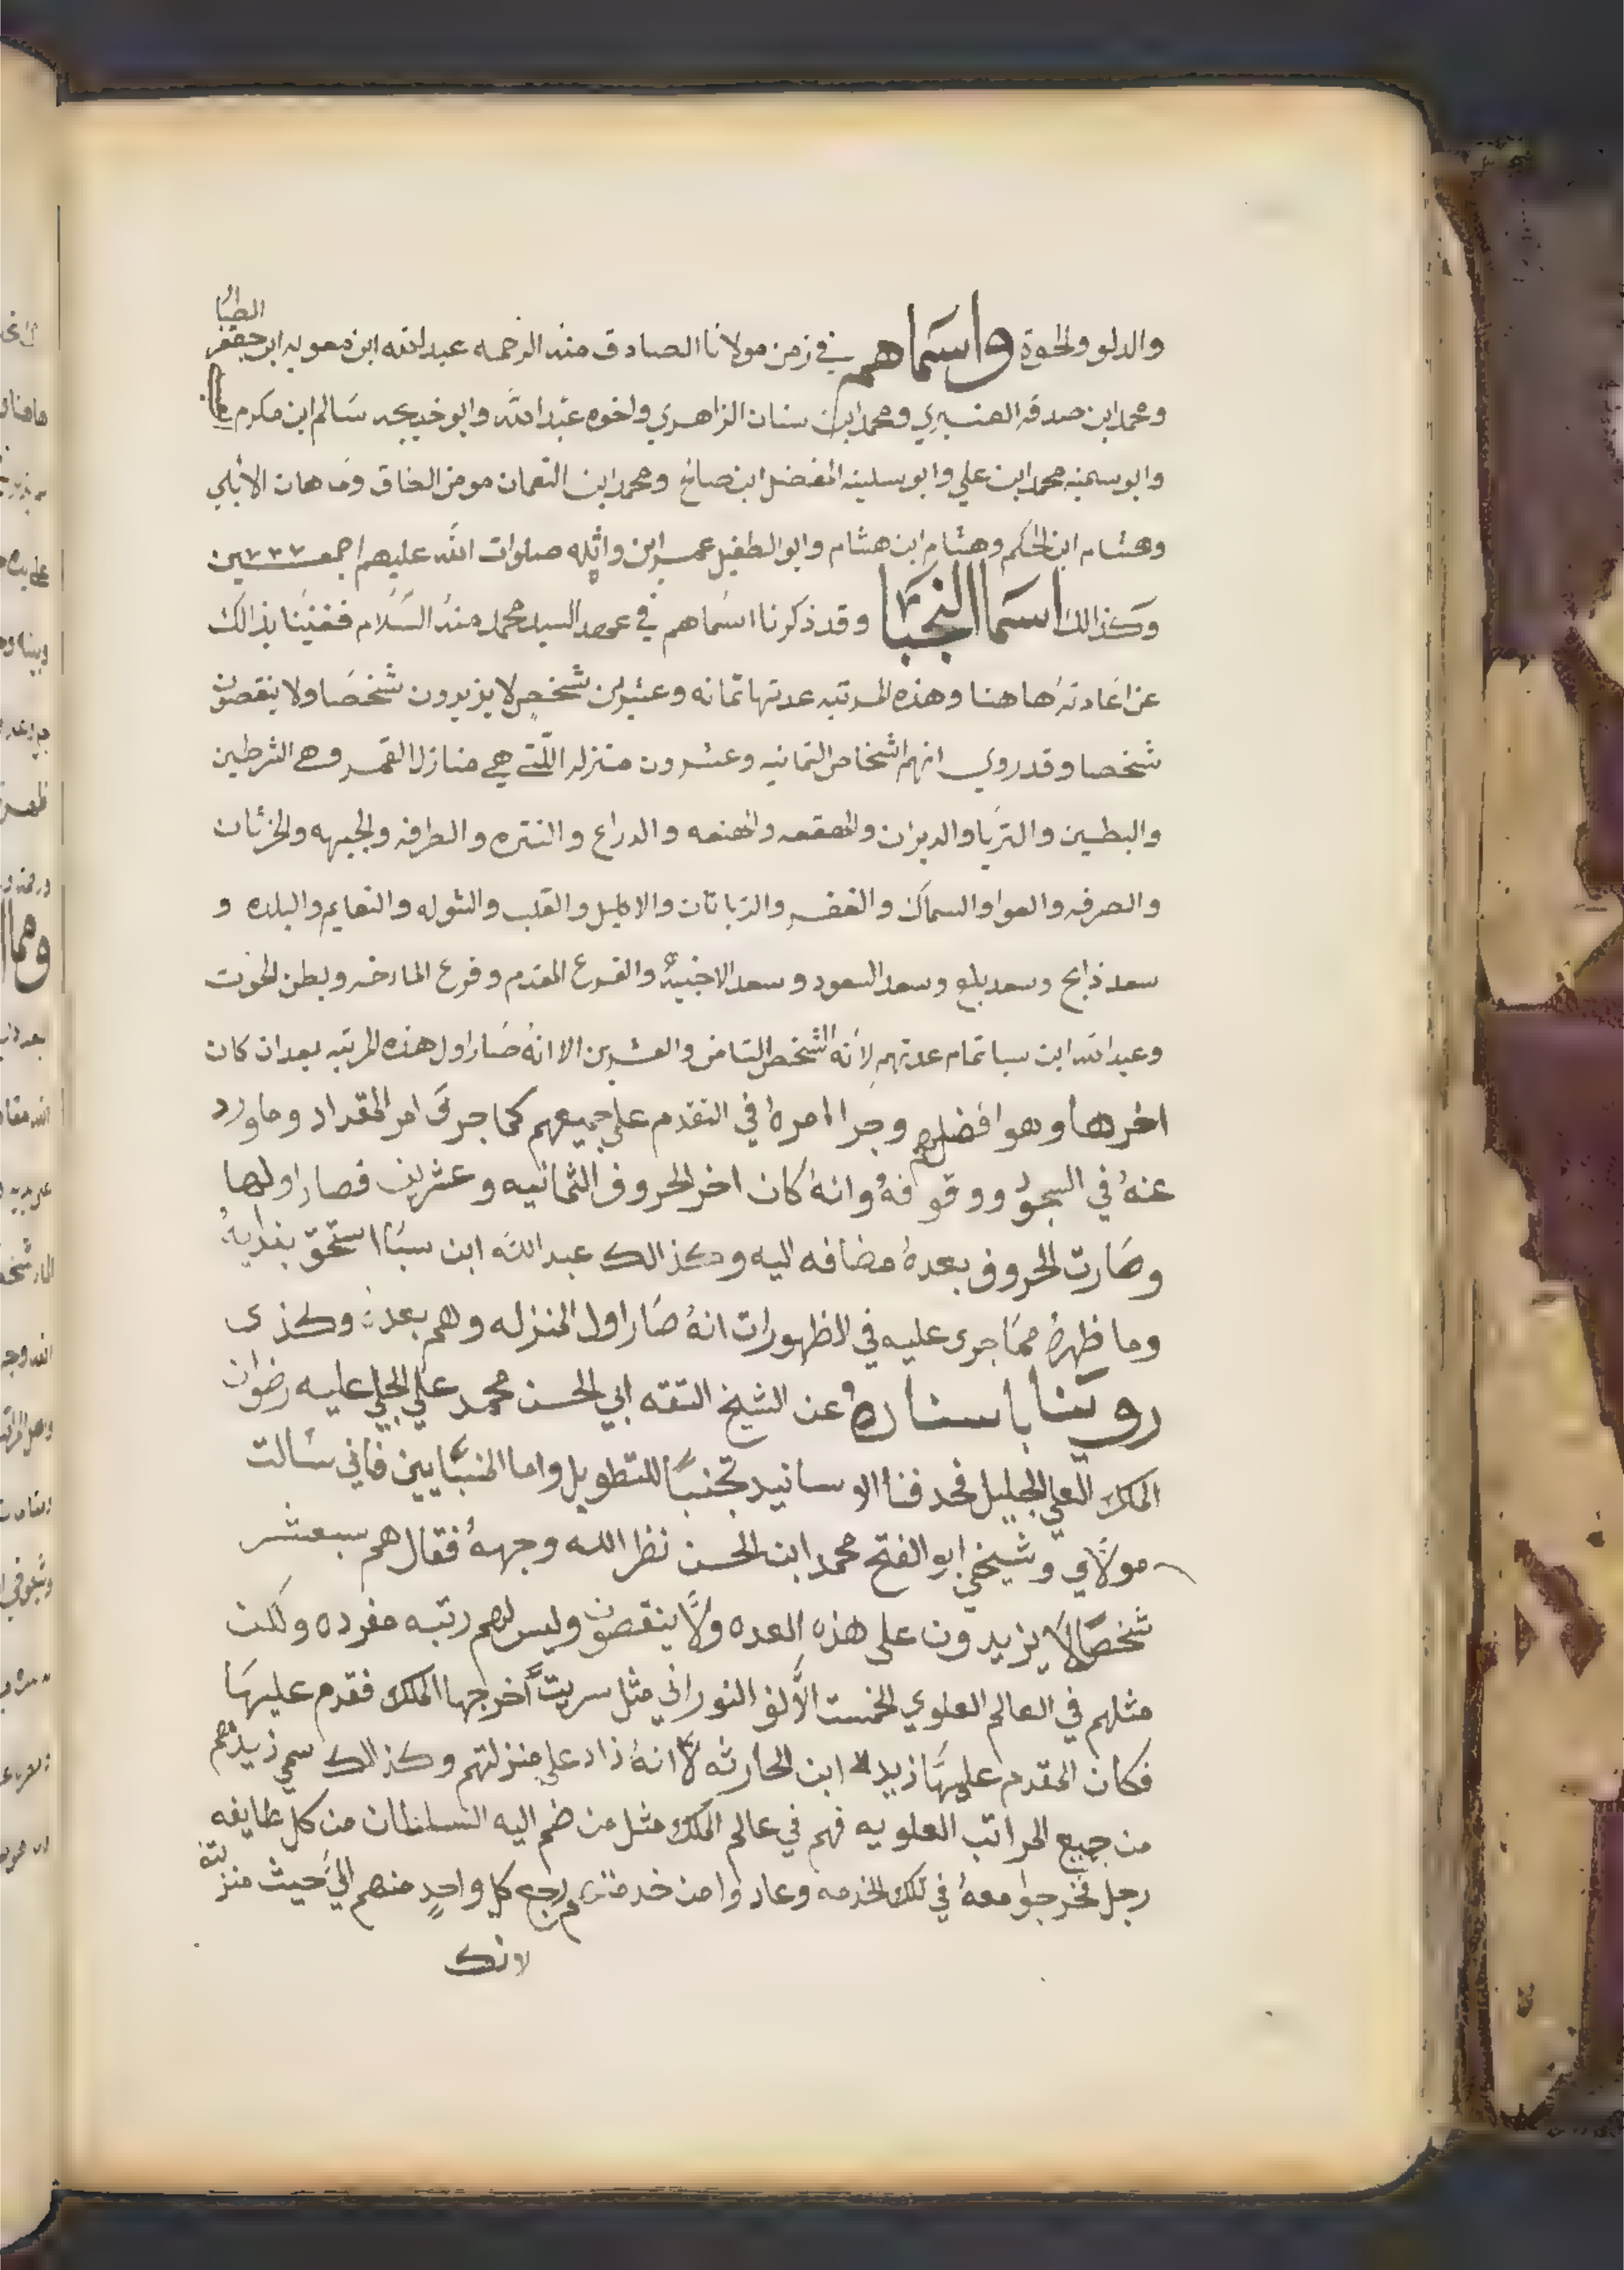 والدلو والحوة واسماهم في زمن مولانا الصادق منه الرحمه عبدالله ابن معويه ابن جعفر الطيار
ومحمد ابن صدقه العنبري ومحمد ابن سنان الزاهري واخوه عبد الله وابو خديجه سالم ابن مكرم
وابو سمينه محمد ابن علي وابو سلينه المفضل ابن صالح ومحمد ابن النعمان مومن الطاق وماهان الابلي
وهشام ابن الحكم وهشام ابن هشام وابو الطفيل عمر ابن واثله صلوات الله عليهم اجمعين
وكذالك اسما النجبا وقد ذكرنا اسماهم في عهد السيد محمد منه السلام فغنينا بذالك
عن اعادته هاهنا وهذه المرتبه عدتها ثمانه وعشرين شخص لا يزيدون شخصا ولا ينقصون
شخصا وقد روي انهم اشخاص الثمانيه وعشرون منزله اللتي هي منازل القمر وهي الشرطين
والبطين والتريا والدبران والهقعه والهنعه والدراع والنتره والطرفه والجبهه والخرثان
والصرفه والعوا والسماك والغفر والزبانان والاكليل والقلب والشوله والنعايم والبلده و
سعد ذابح وسعد بلع وسعد السعود وسعد الاخبيه والفرع المقدم وفرع الماخر وبطن الحوت
وعبدالله ابن سبا تمام عدتهم لانه الشخص الثامن والعشرين الا انه صار اول هذه المرتبه بعد ان كان
اخرها وهو افضلهم وجرا امره في التقدم على جميعهم كما جرى امر المقداد وما ورد
عنه في السجود ووقوفه وانه كان اخر الحروف الثمانيه وعشرين فصار اولها
وصارت الحروف بعده مضافه اليه وكذالك عبدالله ابن سبا استحق
وما ظهر مما جرى عليه في الظهورات انه صار اول المنزله وهم بعده وكذى
روينا باسناده عن الشيخ الثقه ابي الحسن محمد علي الجلي عليه رضوان
الملك العلي الجليل فحدفنا الاسانيد تجنبا للتطويل واما المنبايين فاني سالت
مولاي وشيخي ابو الفتح محمد ابن الحسن نظر الله وجهه فقال هم سبعشر
شخصا لا يزيدون على هذه العده ولا ينقصون وليس لهم رتبه مفرده ولكن
مثلهم في العالم العلوي الخمست الالف النوراني مثل سريت اخرجها الملك فقدم عليها
فكان المقدم عليها زيد ابن الحارثه لانه زاد على منزلتهم وكذالك سمي زيد هم
من جميع المراتب العلويه فهم في عالم الملك مثل من ضم اليه السلطان من كل طايفه
رجل تخرجوا معه في تلك الخدمه وعادوا من خدمته رجع كل واحد منهم الي حيث منزلته
لانك